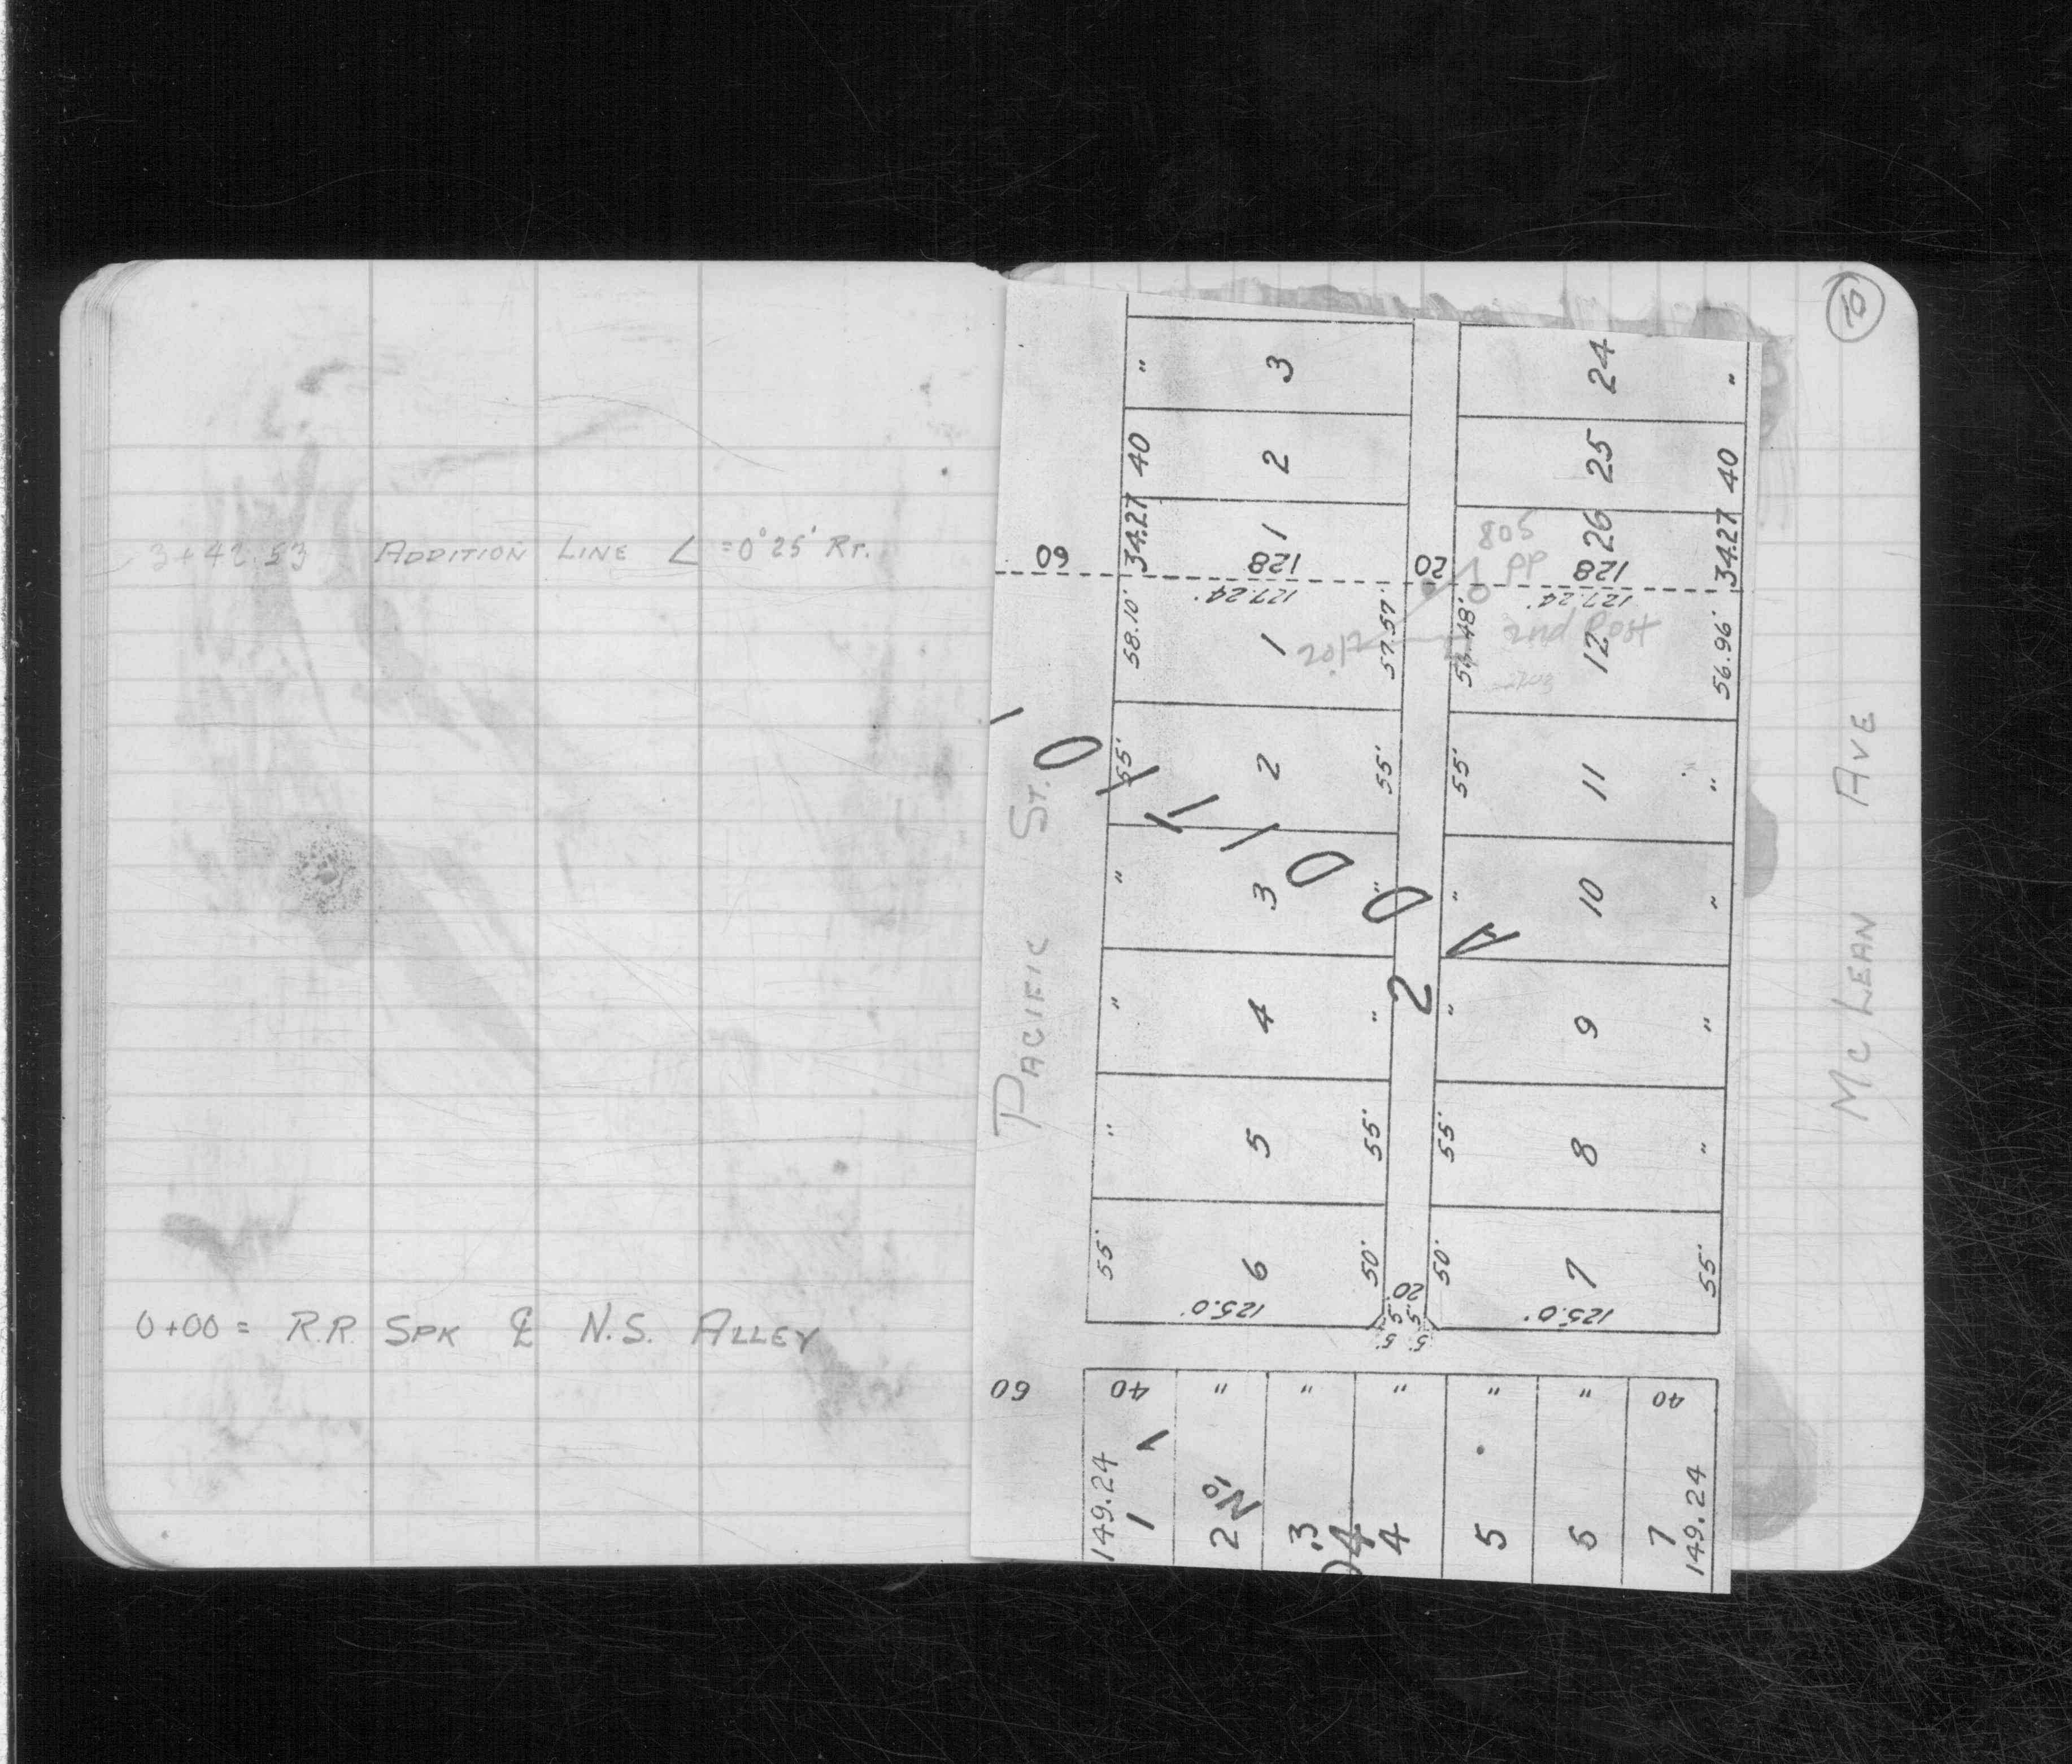 3+42.53 ADDITION LINE ∠ =0°25' RT.
0+00 = R.R. SPK ℄ N.S. ALLEY
PACIFIC ST.
MC LEAN AVE
" 3 24 "
40 2 25 40
34.27 1 26 34.27
60 128 20 128
805
PP
127.24' 127.24'
58.10' 1 57.57' 12 56.96'
2nd Post
55' 2 55' 55' 11 "
" 3 " " 10 "
" 4 " " 9 "
" 5 55' 55' 8 "
55' 6 50' 50' 7 55'
125.0' 20 125.0'
5' 5' 5' 5'
ADDITIO
2
60 40 " " " " " 40
149.24 149.24
1 2 3 4 5 6 7
No. 1